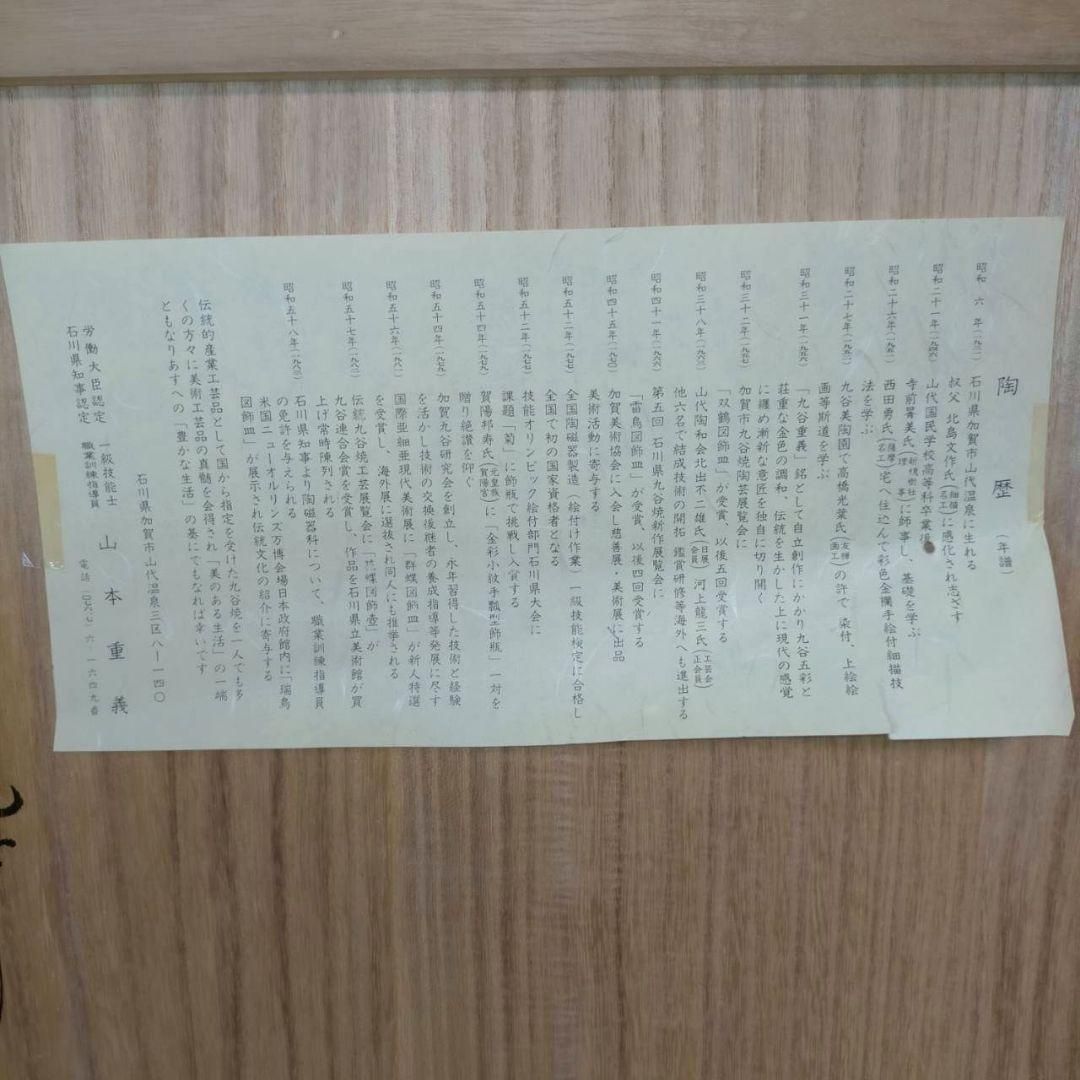 陶歴(年譜)
昭和 六 年(一九三一) 石川県加賀市山代温泉に生れる
叔父 北島文作氏(細描名工)に感化され志ざす
昭和二十一年(一九四六) 山代国民学校高等科卒業後
寺前署美氏(新槐樹社理事)に師事し、基礎を学ぶ
昭和二十六年(一九五一) 西田勇氏(薩摩名工)宅へ住込んで彩色金襴手絵付細描技
法を学ぶ
昭和二十七年(一九五二) 九谷美陶園で高橋光葉氏(友禅画工)の許で 染付、上絵絵
画等斯道を学ぶ
昭和三十一年(一九五六) 「九谷重義」銘として自立創作にかかり九谷五彩と
荘重な金色の調和、伝統を生かした上に現代の感覚
に纏め漸新な意匠を独自に切り開く
昭和三十二年(一九五七) 加賀市九谷焼陶芸展覧会に
「双鶴図飾皿」が受賞、以後五回受賞する
昭和三十八年(一九六三) 山代陶和会北出不二雄氏(日展会員) 河上龍三氏(工芸会正会員)
他六名で結成技術の開拓 鑑賞研修等海外へも進出する
昭和四十一年(一九六六) 第五回 石川県九谷焼新作展覧会に
「雷鳥図飾皿」が受賞、以後四回受賞する
昭和四十五年(一九七〇) 加賀美術協会に入会し慈善展・美術展に出品
美術活動に寄与する
昭和五十二年(一九七七) 全国陶磁器製造(絵付け作業)一級技能検定に合格し
全国で初の国家資格者となる
昭和五十二年(一九七七) 技能オリンピック絵付部門石川県大会に
課題「菊」に飾瓶で挑戦し入賞する
昭和五十四年(一九七九) 賀陽邦寿氏(元皇族賀陽宮)に「金彩小紋手瓢型飾瓶」一対を
贈り絶讃を仰ぐ
昭和五十四年(一九七九) 加賀九谷研究会を創立し、永年習得した技術と経験
を活かし技術の交換後継者の養成指導等発展に尽す
昭和五十六年(一九八一) 国際亜細亜現代美術展に「群蝶図飾皿」が新人特選
を受賞し、海外展に選抜され同人にも推挙される
昭和五十七年(一九八二) 伝統九谷焼工芸展覧会に「花蝶図飾壷」が
九谷連合会賞を受賞し、作品を石川県立美術館が買
上げ常時陳列される
昭和五十八年(一九八三) 石川県知事より陶磁器科について、職業訓練指導員
の免許を与えられる
米国ニューオルリンズ万博会場日本政府館内に「瑞鳥
図飾皿」が展示され伝統文化の紹介に寄与する
伝統的産業工芸品として国から指定を受けた九谷焼を一人でも多
くの方々に美術工芸品の真髄を会得され「美のある生活」の一端
ともなりあすへの「豊かな生活」の基にでもなれば幸いです
石川県加賀市山代温泉三区八ー一四〇
労働大臣認定 一級技能士
石川県知事認定 職業訓練指導員
山本重義
電話(〇七六一七)六・一六四九番